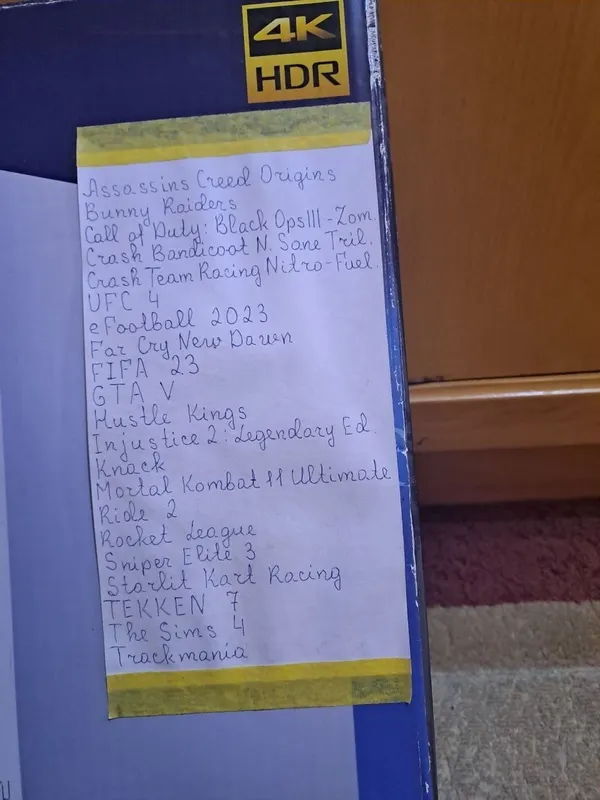 4K
HDR
Assassins Creed Origins
Bunny Raiders
Call of Duty: Black OpsIII-Zom.
Crash Bandicoot N. Sane Tril.
Crash Team Racing Nitro-Fuel.
UFC 4
eFootball 2023
Far Cry New Dawn
FIFA 23
GTA V
Hustle Kings
Injustice 2: Legendary Ed.
Knack
Mortal Kombat 11 Ultimate
Ride 2
Rocket League
Sniper Elite 3
Starlit Kart Racing
TEKKEN 7
The Sims 4
Trackmania